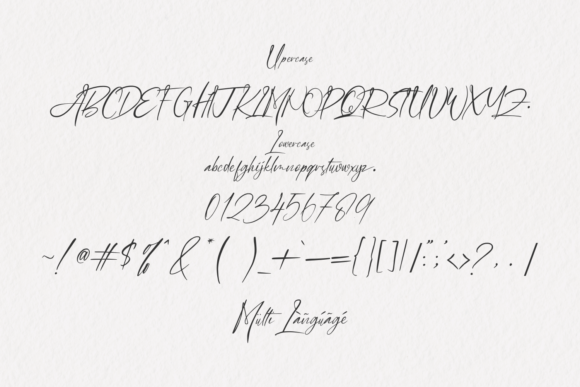 Uppercase
ABCDEFGHIJKLMNOPQRSTUVWXYZ.
Lowercase
abcdefghijklmnopqrstuvwxyz.
0123456789
~!@#$%^&*()_+`-={}[]|/:";'<>?,./
Múltì Làñgúãgé